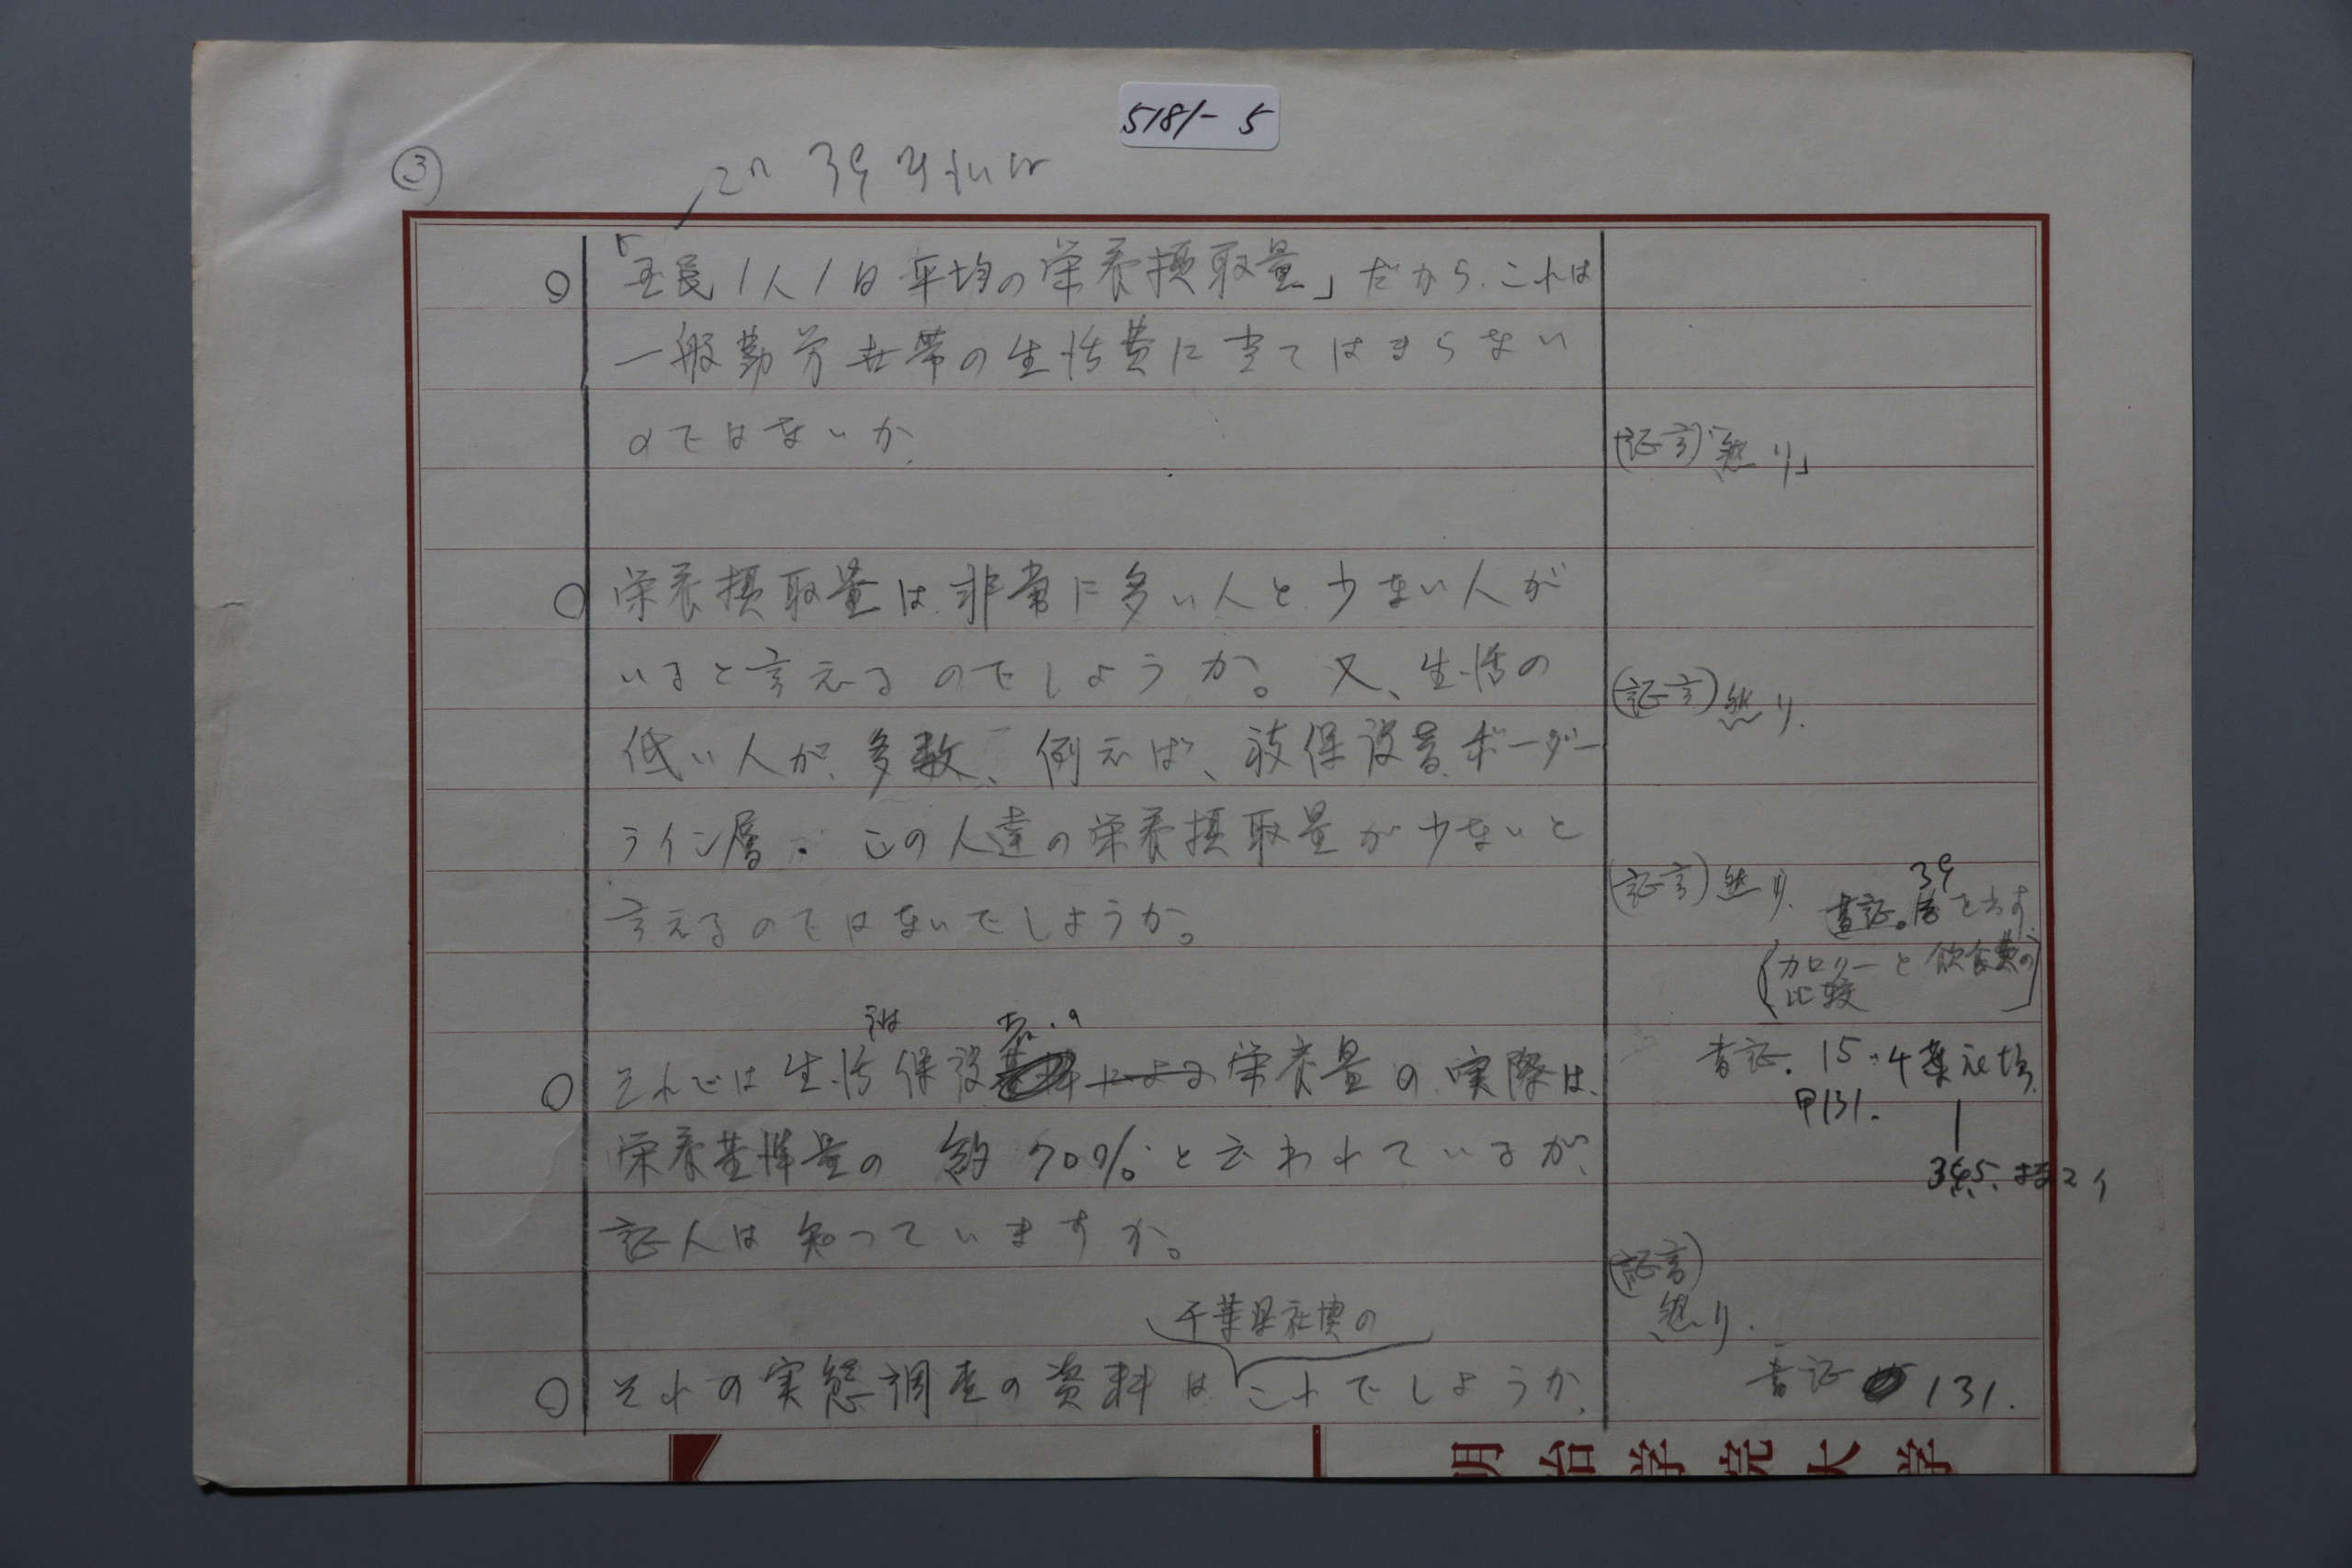 5181-5
③
○「国民1人1日平均の栄養摂取量」だから、これは
一般勤労世帯の生活費に当てはまらない
のではないか。
(証言)「然り」
○栄養摂取量は非常に多い人と少ない人が
いると言えるのでしょうか。又、生活の
(証言)然り.
低い人が、多数、例えば、被保護者、ボーダー
ライン層. この人達の栄養摂取量が少ないと
言えるのではないでしょうか。
(証言)然り.
書証. 39 を出す
(カロリーと飲食費の
比較)
○それでは生活保護 栄養量の実際は、
書証. 15
P131.
栄養基準量の 約70%と云われているが、
証人は知っていますか。
(証言)
然り.
千葉県社協の
○それの実態調査の資料はこれでしょうか.
書証 131.
明治学院大学